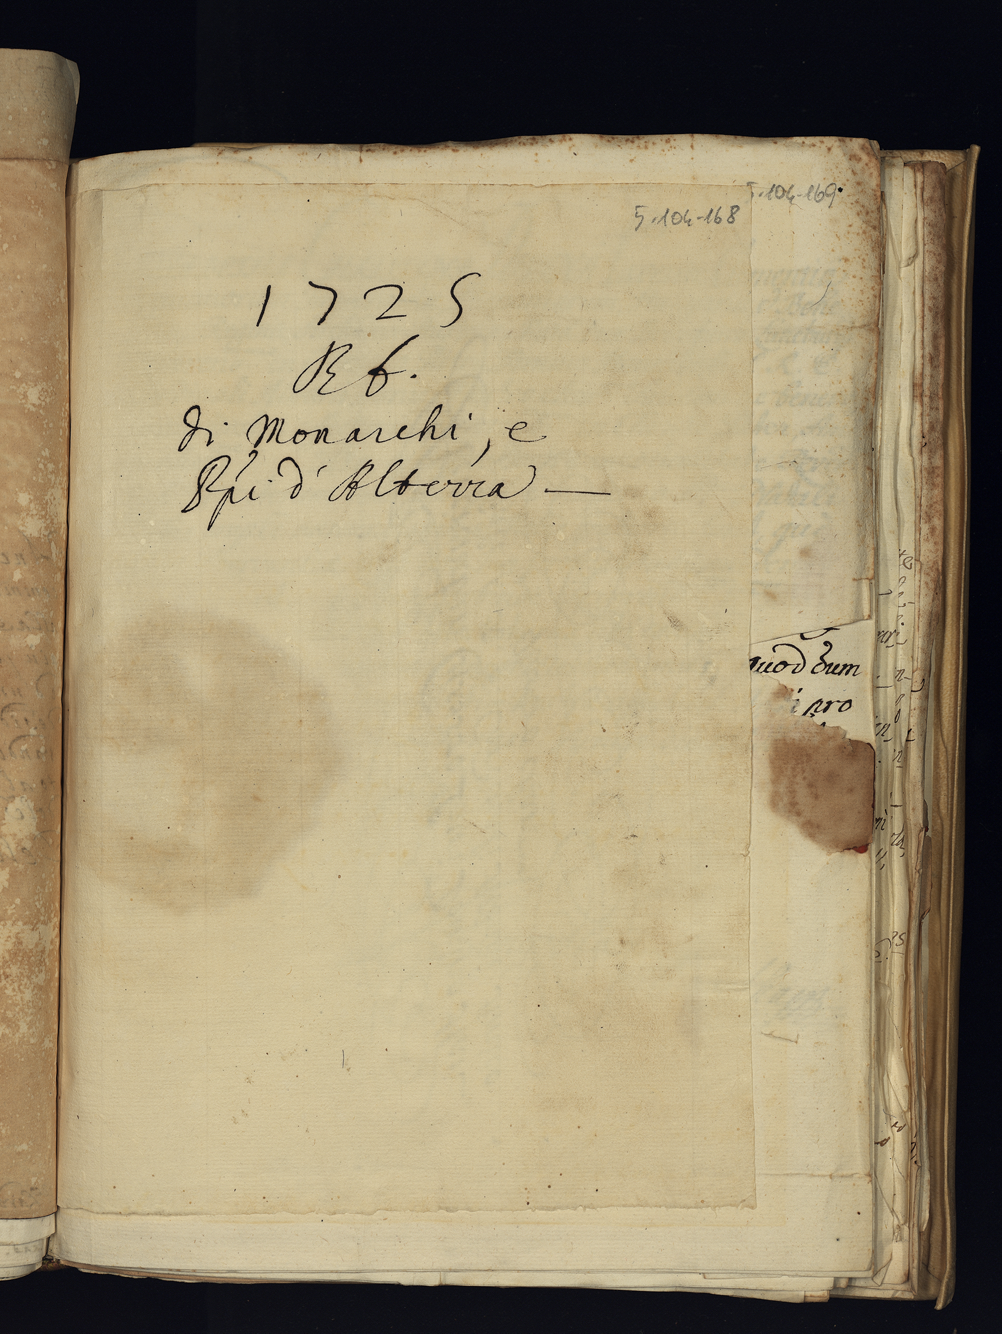 5.104-169
5.104-168
1725
R6.
di Monarchi, e
Ppi d'Alterra —
quod dum
pro